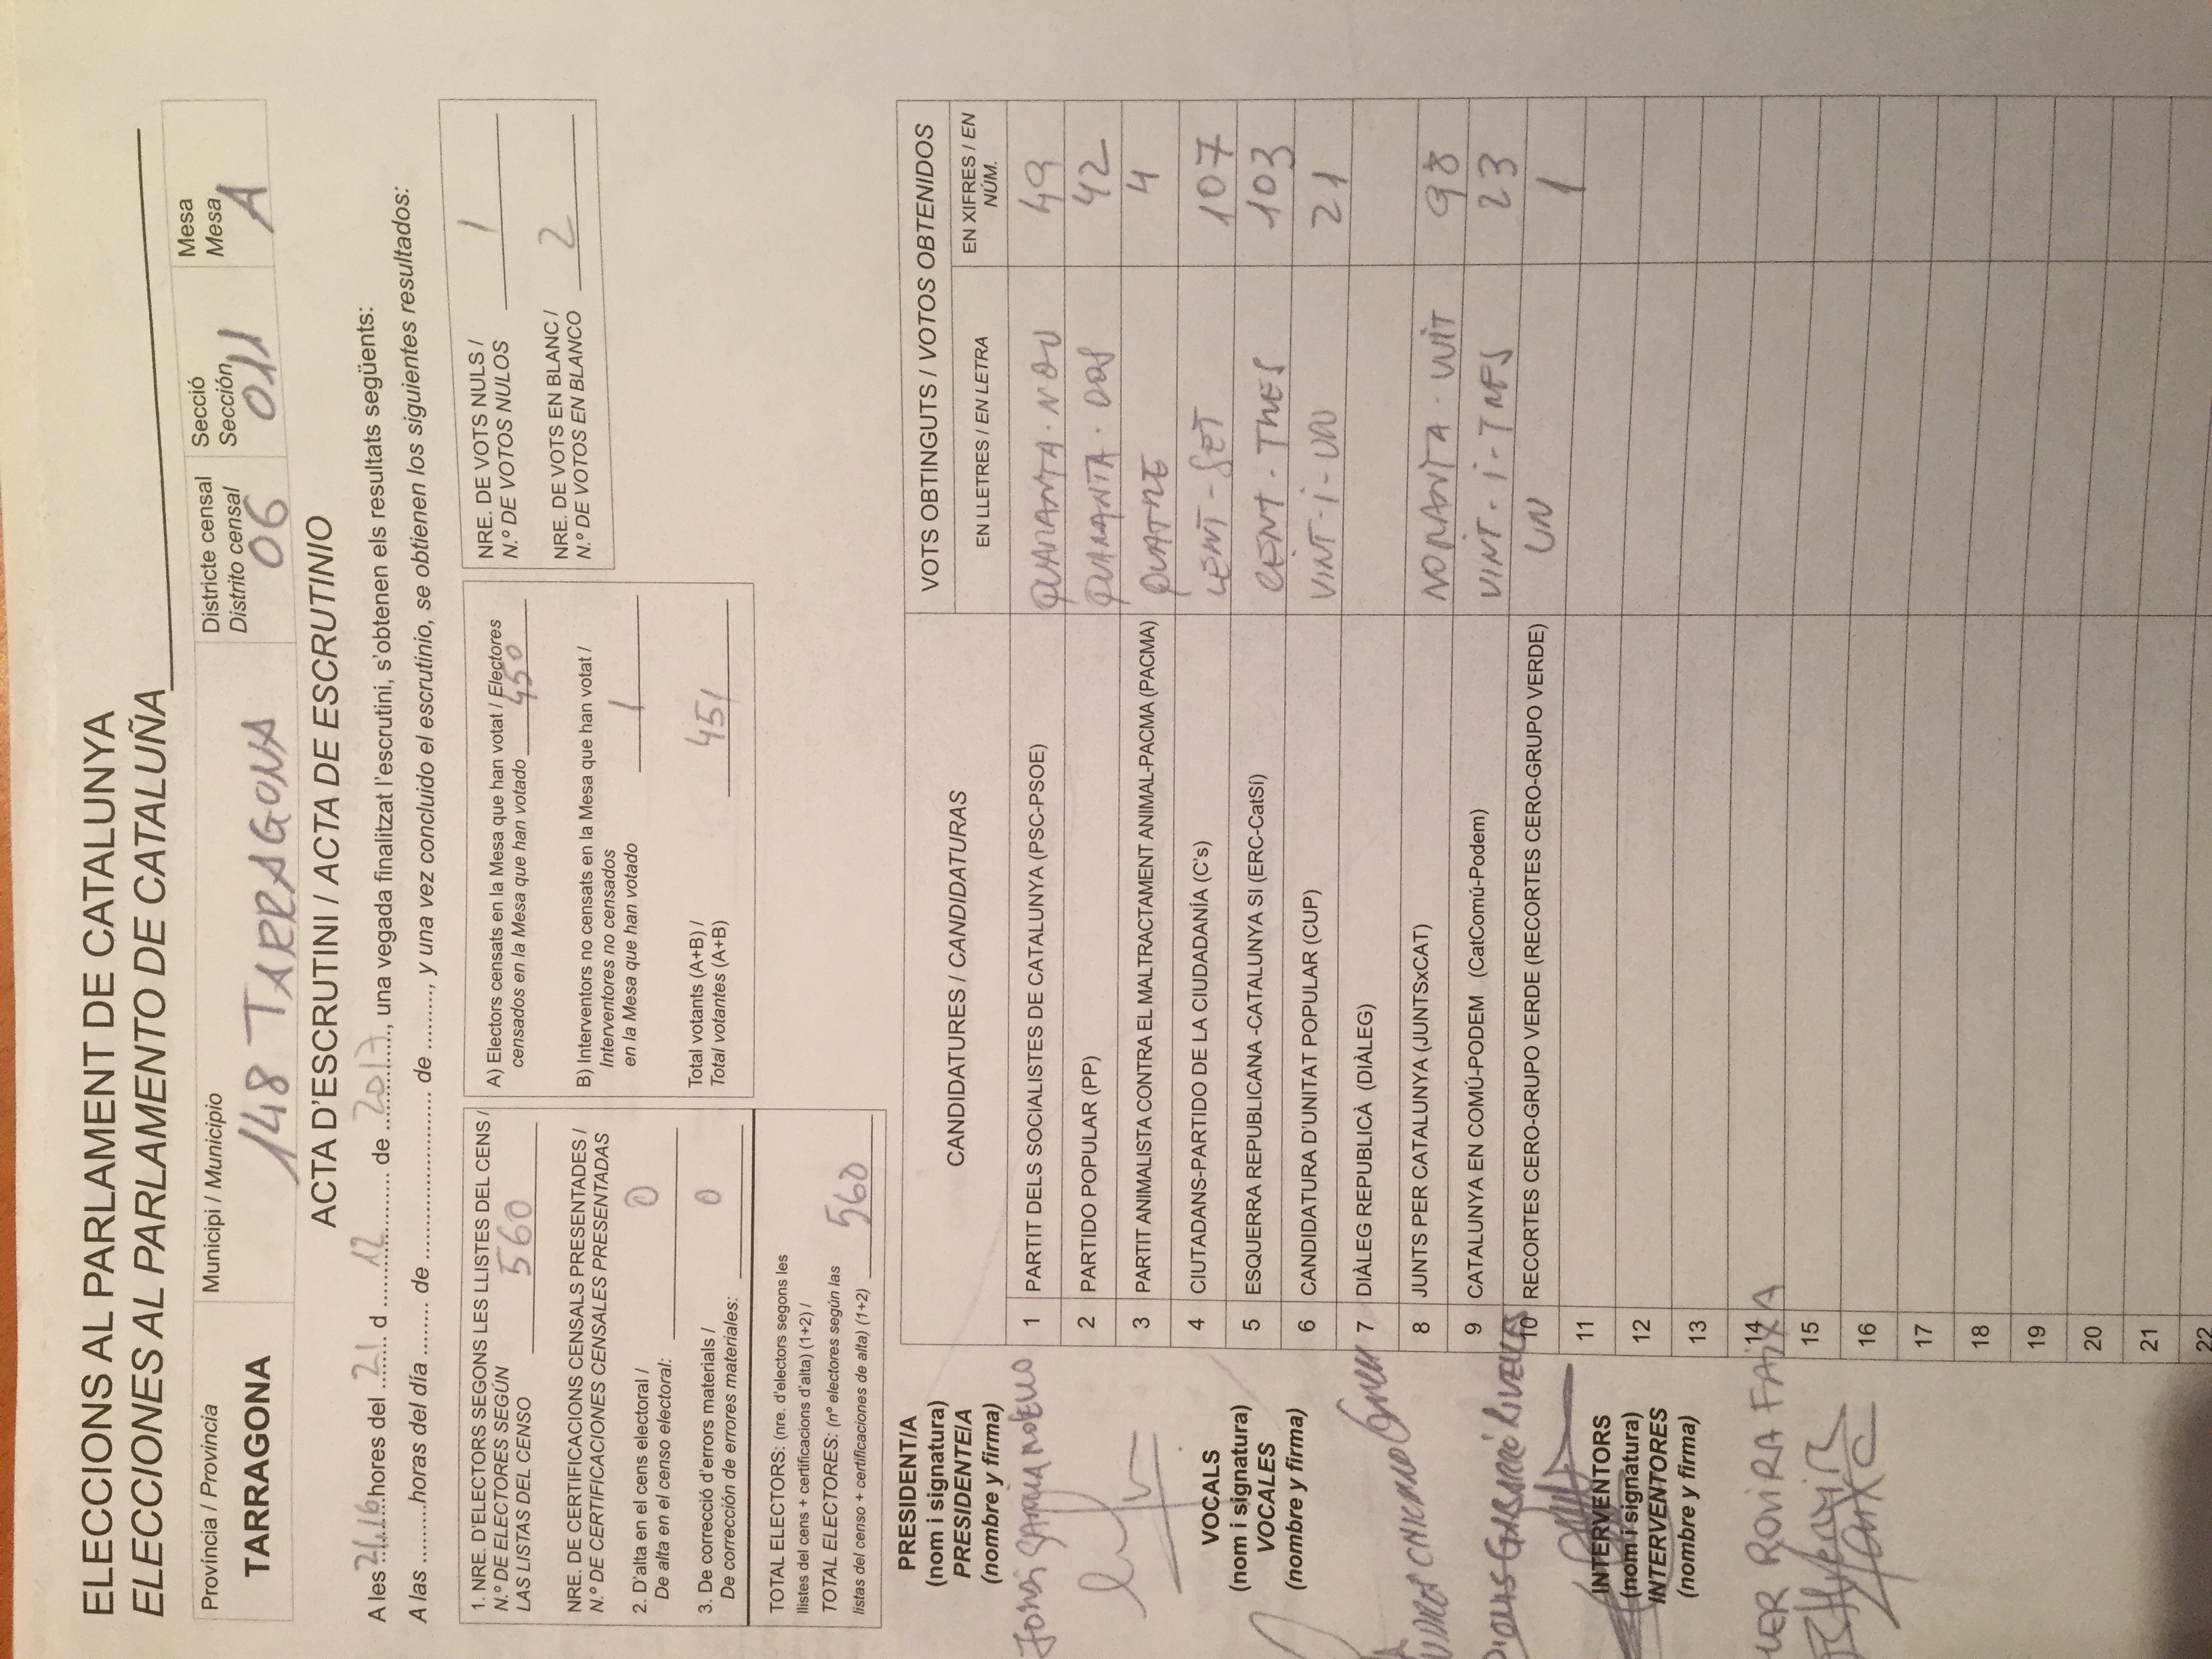 ELECCIONS AL PARLAMENT DE CATALUNYA
ELECCIONES AL PARLAMENTO DE CATALUÑA
Província / Provincia
TARRAGONA
Municipi / Municipio
148 TARRAGONA
Districte censal
Distrito censal
06
Secció
Sección
011
Mesa
Mesa
A
ACTA D'ESCRUTINI / ACTA DE ESCRUTINIO
A les 21,16 hores del 21 d 12 de 2017, una vegada finalitzat l'escrutini, s'obtenen els resultats següents:
A las .........horas del día ........ de ........................ de ........., y una vez concluido el escrutinio, se obtienen los siguientes resultados:
1. NRE. D'ELECTORS SEGONS LES LLISTES DEL CENS /
N.º DE ELECTORES SEGÚN
LAS LISTAS DEL CENSO 560
NRE. DE CERTIFICACIONS CENSALS PRESENTADES /
N.º DE CERTIFICACIONES CENSALES PRESENTADAS
2. D'alta en el cens electoral /
De alta en el censo electoral: 0
3. De correcció d'errors materials /
De corrección de errores materiales: 0
TOTAL ELECTORS: (nre. d'electors segons les
llistes del cens + certificacions d'alta) (1+2) /
TOTAL ELECTORES: (nº electores según las
listas del censo + certificaciones de alta) (1+2) 560
A) Electors censats en la Mesa que han votat / Electores
censados en la Mesa que han votado 450
B) Interventors no censats en la Mesa que han votat /
Interventores no censados
en la Mesa que han votado 1
Total votants (A+B) /
Total votantes (A+B) 451
NRE. DE VOTS NULS /
N.º DE VOTOS NULOS 1
NRE. DE VOTS EN BLANC /
N.º DE VOTOS EN BLANCO 2
PRESIDENT/A
(nom i signatura)
PRESIDENTE/A
(nombre y firma)
VOCALS
(nom i signatura)
VOCALES
(nombre y firma)
CHICANO
GABARRÓ
INTERVENTORS
(nom i signatura)
INTERVENTORES
(nombre y firma)
ROVIRA FAIXA
CANDIDATURES / CANDIDATURAS
VOTS OBTINGUTS / VOTOS OBTENIDOS
EN LLETRES / EN LETRA
EN XIFRES / EN
NÚM.
1 PARTIT DELS SOCIALISTES DE CATALUNYA (PSC-PSOE) QUARANTA-NOU 49
2 PARTIDO POPULAR (PP) QUARANTA-DOS 42
3 PARTIT ANIMALISTA CONTRA EL MALTRACTAMENT ANIMAL-PACMA (PACMA) QUATRE 4
4 CIUTADANS-PARTIDO DE LA CIUDADANÍA (C's) CENT-SET 107
5 ESQUERRA REPUBLICANA -CATALUNYA SI (ERC-CatSí) CENT-TRES 103
6 CANDIDATURA D'UNITAT POPULAR (CUP) VINT-I-UN 21
7 DIÀLEG REPUBLICÀ (DIÀLEG)
8 JUNTS PER CATALUNYA (JUNTSxCAT) NORANTA-VUIT 98
9 CATALUNYA EN COMÚ-PODEM (CatComú-Podem) VINT-I-TRES 23
10 RECORTES CERO-GRUPO VERDE (RECORTES CERO-GRUPO VERDE) UN 1
11
12
13
14
15
16
17
18
19
20
21
22